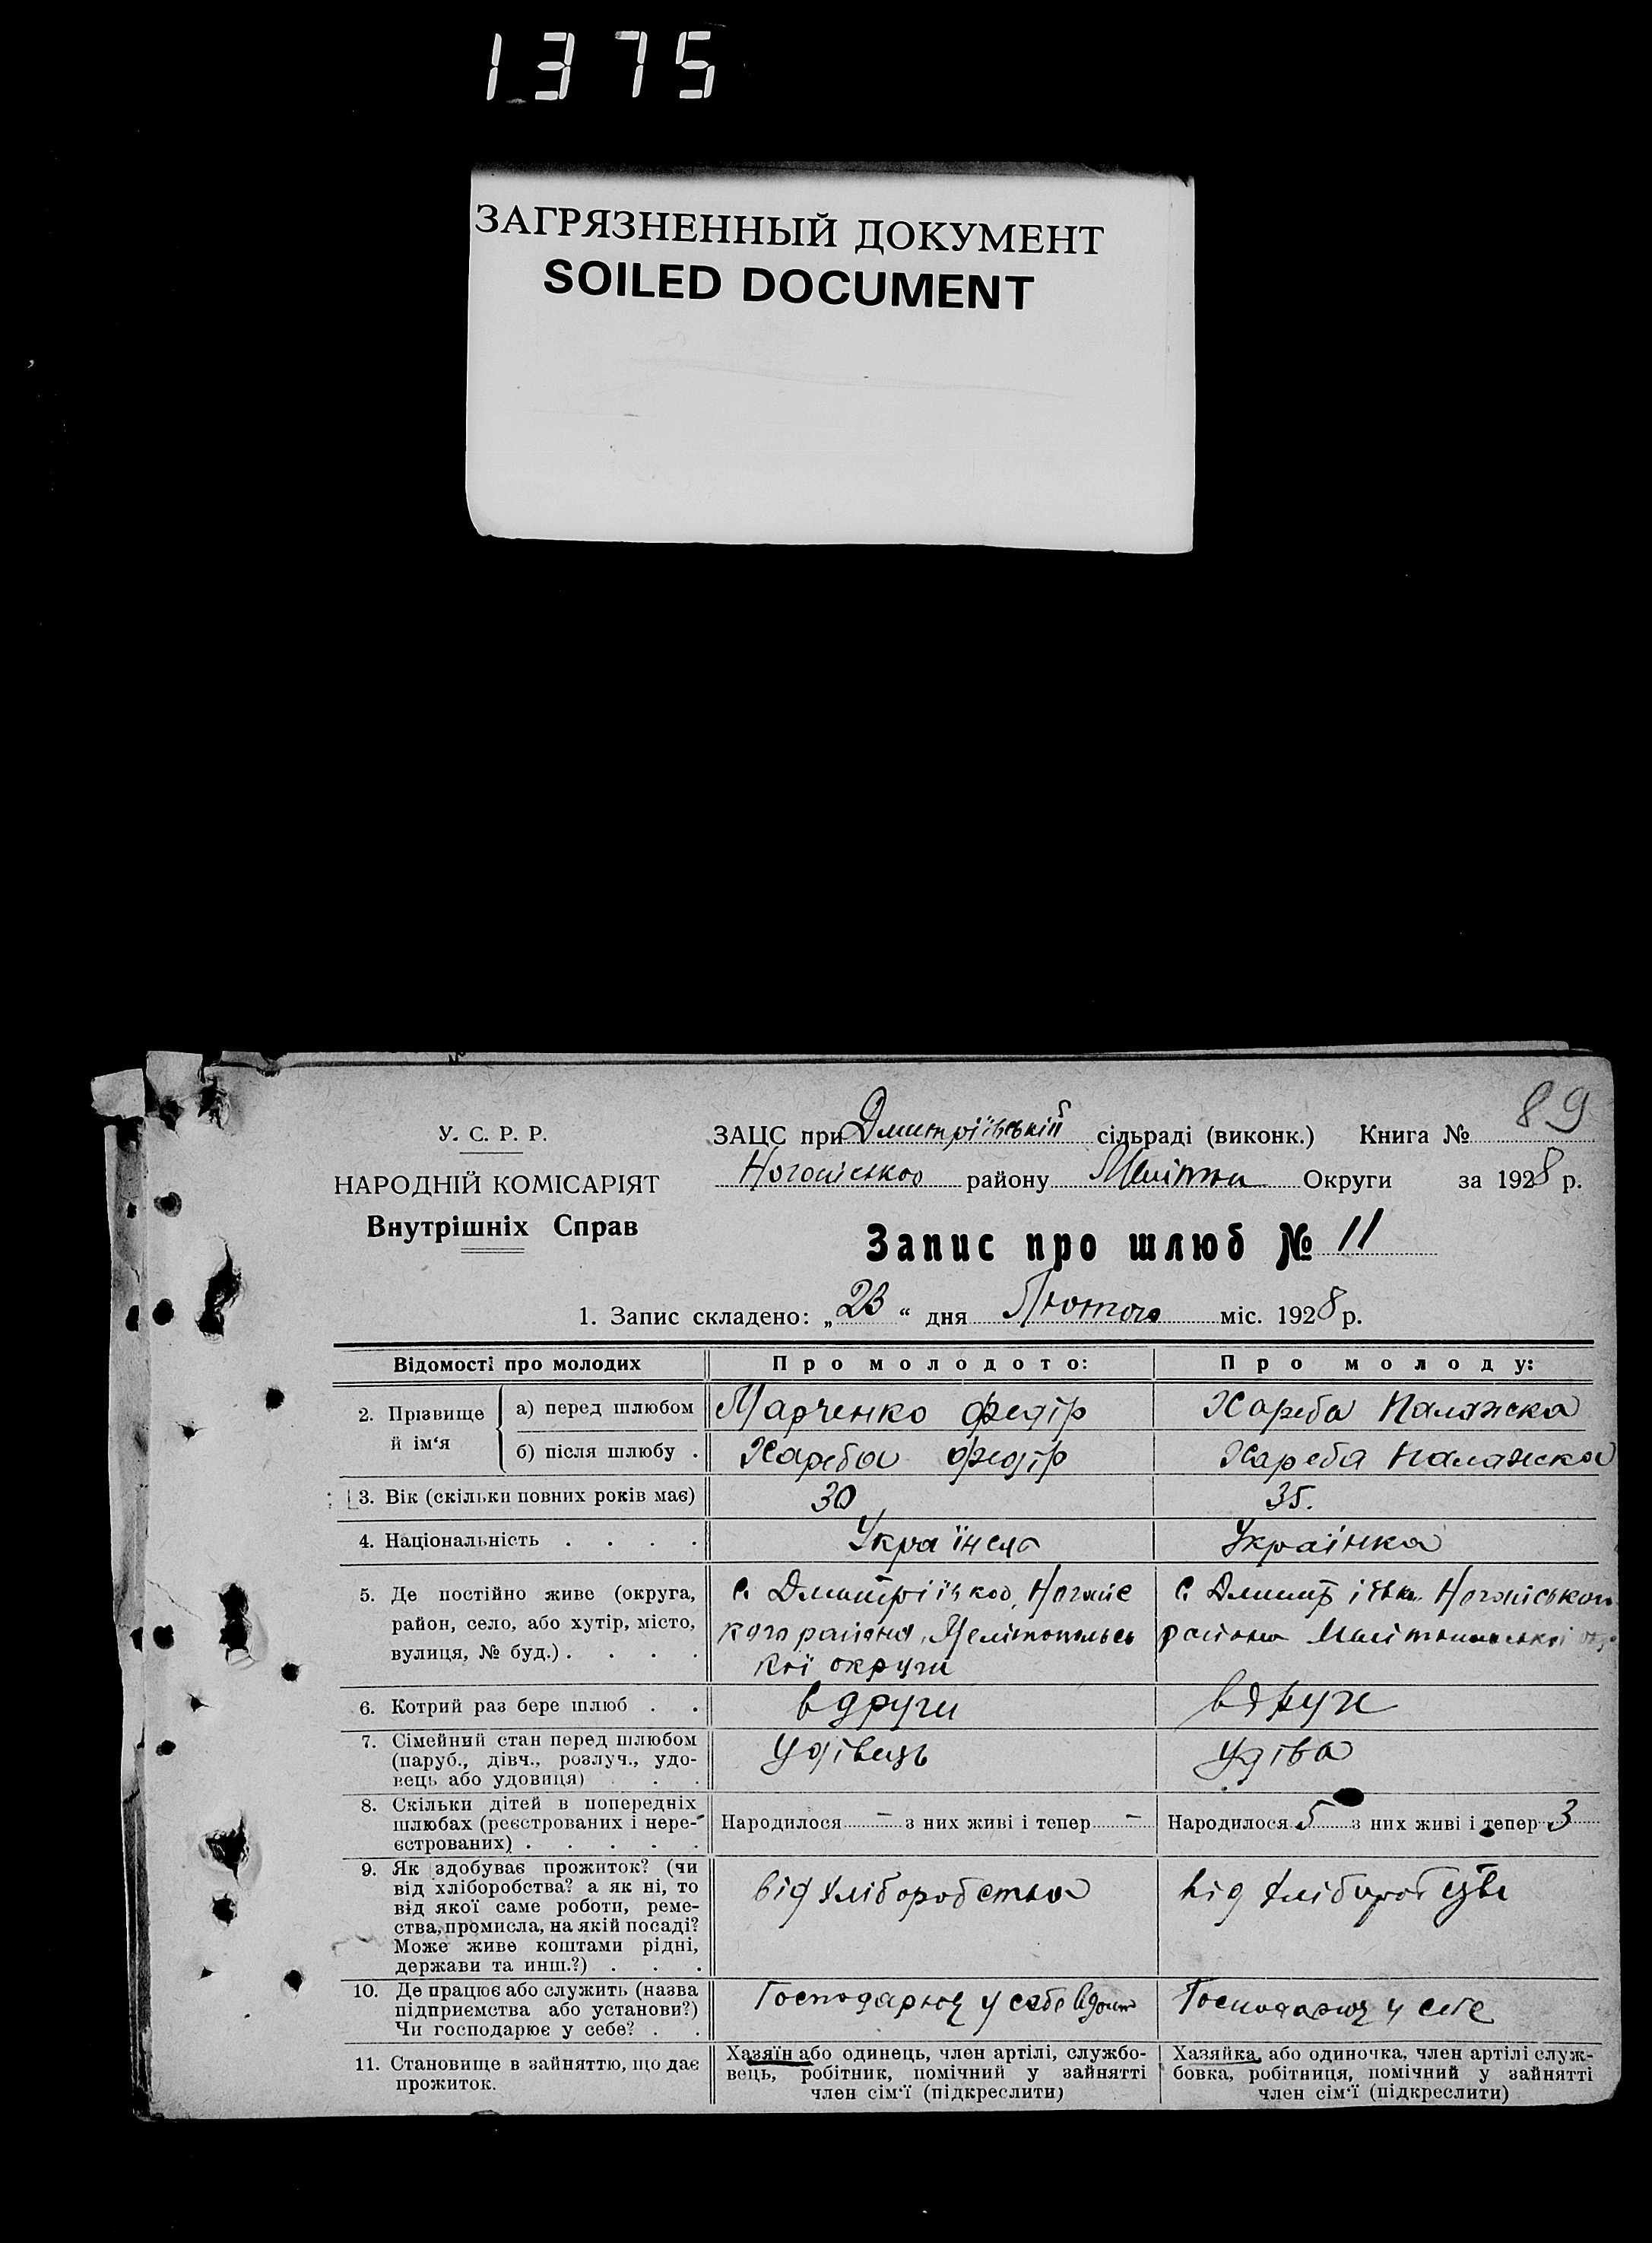 1375
ЗАГРЯЗНЕННЫЙ ДОКУМЕНТ
SOILED DOCUMENT
89
У. С. Р. Р.
НАРОДНІЙ КОМІСАРІЯТ
Внутрішніх Справ
ЗАЦС при Дмитріївській сільраді (виконк.) Книга №
району Округи за 1928 р.
Запис про шлюб № 11
1. Запис складено: „23“ дня Лютого міс. 1928 р.
Відомості про молодих
Про молодого:
Про молоду:
2. Прізвище й ім‘я
а) перед шлюбом
Марченко Федір
Хареба
б) після шлюбу .
Хареба Федір
Хареба
3. Вік (скільки повних років має)
30
35.
4. Національність . . . .
Українець
Українка
5. Де постійно живе (округа,
район, село, або хутір, місто,
вулиця, № буд.) . . . .
с. Ногайс
кого района,
кої округи
с. Ногайського
района
6. Котрий раз бере шлюб . .
вдруги
вдруги
7. Сімейний стан перед шлюбом
(паруб., дівч., розлуч., удо-
вець або удовиця) . .
Удівець
Удіва
8. Скільки дітей в попередніх
шлюбах (реєстрованих і нере-
єстрованих) . . . . .
Народилося – з них живі і тепер –
Народилося 5 з них живі і тепер 3
9. Як здобуває прожиток? (чи
від хліборобства? а як ні, то
від якої саме роботи, реме-
ства, промисла, на якій посаді?
Може живе коштами рідні,
держави та инш.?) . . .
від хліборобства
від
10. Де працює або служить (назва
підприємства або установи?)
Чи господарює у себе? . .
Господарює у себе
Господарює у себе
11. Становище в зайняттю, що дає
прожиток.
Хазяїн або одинець, член артілі, службо-
вець, робітник, помічний у зайнятті
член сім‘ї (підкреслити)
Хазяйка, або одиночка, член артілі служ-
бовка, робітниця, помічний у зайнятті
член сім‘ї (підкреслити)